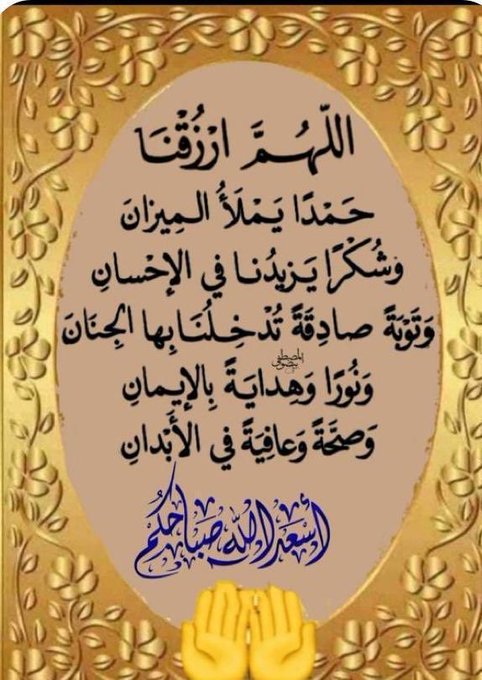 اللّهُمَّ ارْزُقْنَا
حَمْدًا يَمْلَأُ الـمِيزانَ
وَشُكْرًا يَزِيدُنا في الإحْسانِ
وَتَوْبَةً صادِقَةً تُدْخِلُنَا بِها الجِنَانَ
وَنُورًا وَهِدايَةً بِالإيمانِ
وَصِحَّةً وَعافِيَةً في الأَبْدانِ
أسعد الله صباحكم